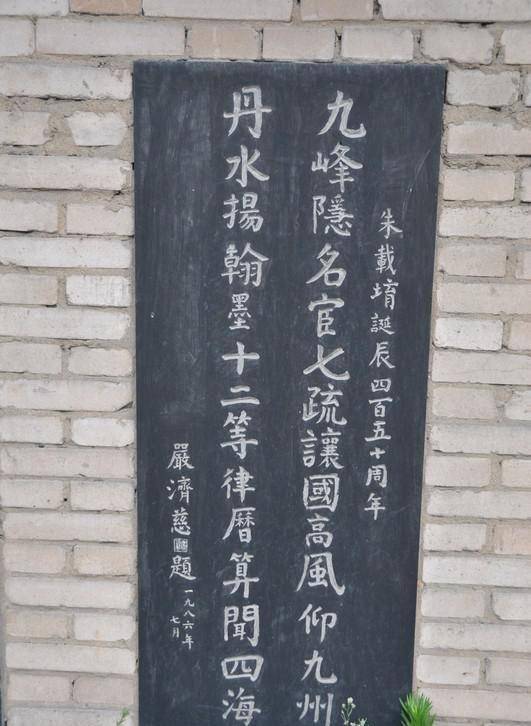 朱載堉誕辰四百五十周年
九峰隱名宦七疏讓國高風仰九州
丹水揚翰墨十二等律曆算聞四海
嚴濟慈題
一九八六年
七月